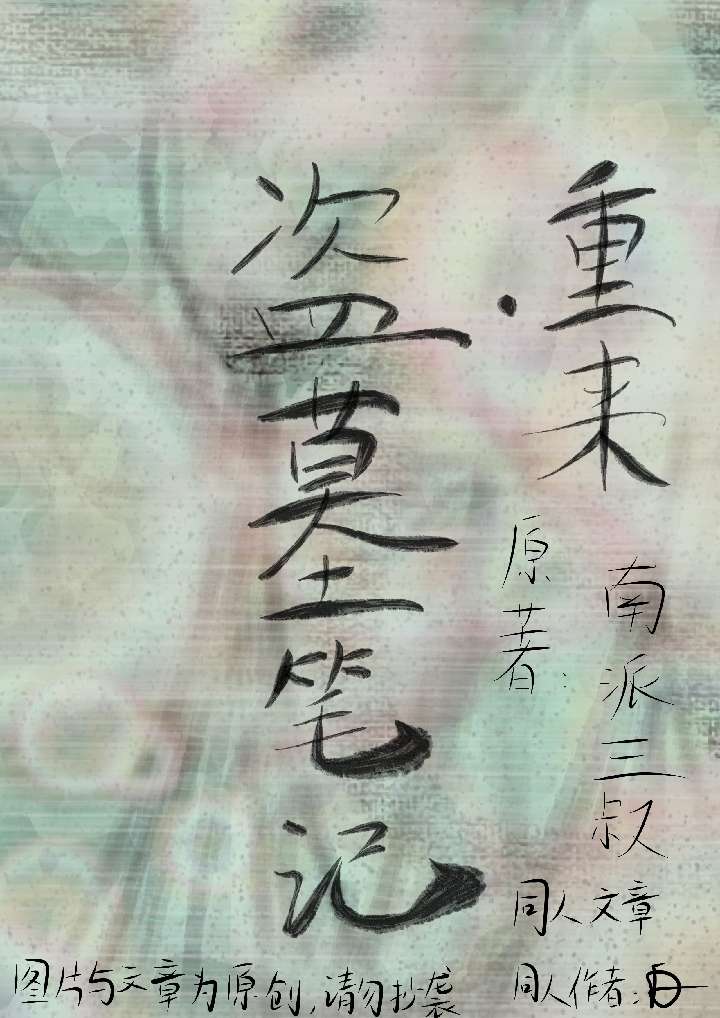 盗墓笔记
·重来
原著：
南派三叔
同人文章
同人作者：
图片与文章为原创，请勿抄袭